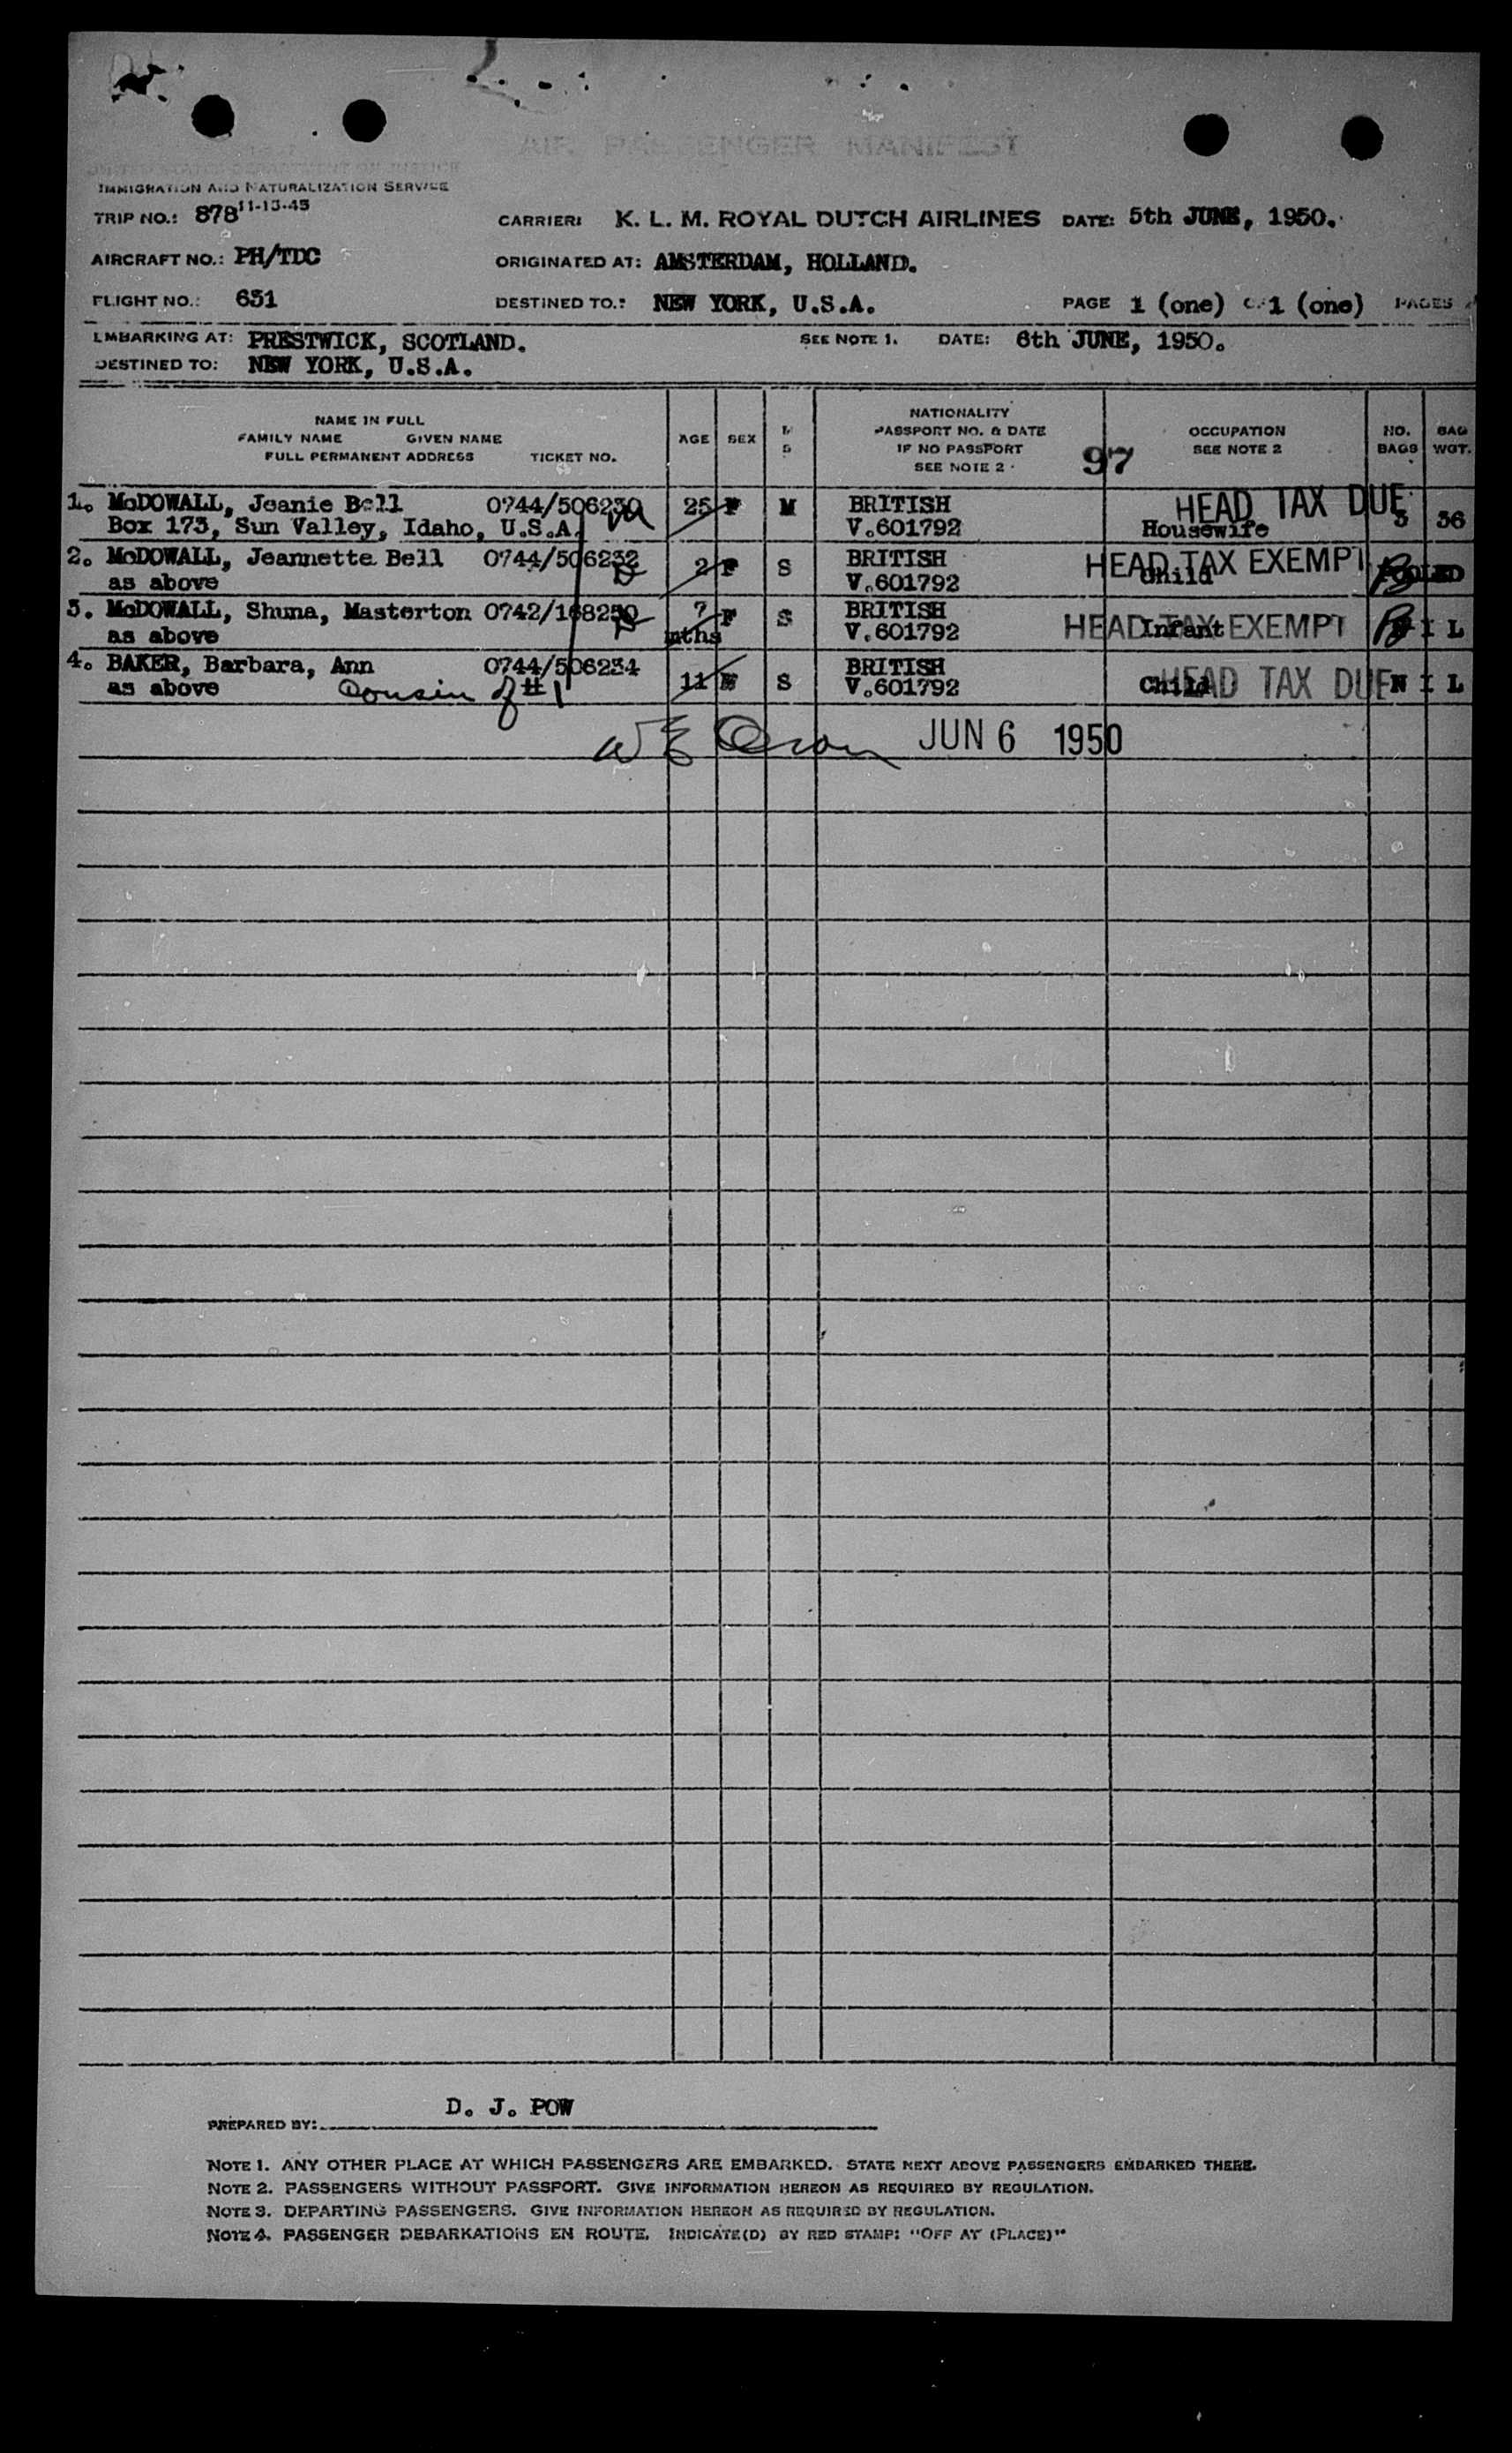 AIR PASSENGER MANIFEST
UNITED STATES DEPARTMENT OF JUSTICE
IMMIGRATION AND NATURALIZATION SERVICE
11-13-45
TRIP NO.: 878 CARRIER: K. L. M. ROYAL DUTCH AIRLINES DATE: 5th JUNE, 1950.
AIRCRAFT NO.: PH/TDC ORIGINATED AT: AMSTERDAM, HOLLAND.
FLIGHT NO.: 631 DESTINED TO.: NEW YORK, U.S.A. PAGE 1 (one) OF 1 (one) PAGES
EMBARKING AT: PRESTWICK, SCOTLAND. SEE NOTE 1. DATE: 6th JUNE, 1950.
DESTINED TO: NEW YORK, U.S.A.
NAME IN FULL
FAMILY NAME GIVEN NAME
FULL PERMANENT ADDRESS TICKET NO.
AGE SEX M S
NATIONALITY
PASSPORT NO. & DATE
IF NO PASSPORT
SEE NOTE 2
97
OCCUPATION
SEE NOTE 2
NO. BAGS
BAG WGT.
1. McDOWALL, Jeanie Bell 0744/506230 25 F M BRITISH HEAD TAX DUE
Box 173, Sun Valley, Idaho, U.S.A. V.601792 Housewife 3 36
2. McDOWALL, Jeannette Bell 0744/506232 2 F S BRITISH HEAD TAX EXEMPT
as above V.601792 Child POOLED
3. McDOWALL, Shuna, Masterton 0742/168250 7 F S BRITISH
as above mths V.601792 Infant HEAD TAX EXEMPT N I L
4. BAKER, Barbara, Ann 0744/506234 11 F S BRITISH
as above Cousin of #1 V.601792 Child HEAD TAX DUE N I L
JUN 6 1950
D. J. POW
PREPARED BY:
NOTE 1. ANY OTHER PLACE AT WHICH PASSENGERS ARE EMBARKED. STATE NEXT ABOVE PASSENGERS EMBARKED THERE.
NOTE 2. PASSENGERS WITHOUT PASSPORT. GIVE INFORMATION HEREON AS REQUIRED BY REGULATION.
NOTE 3. DEPARTING PASSENGERS. GIVE INFORMATION HEREON AS REQUIRED BY REGULATION.
NOTE 4. PASSENGER DEBARKATIONS EN ROUTE. INDICATE(D) BY RED STAMP: "OFF AT (PLACE)"